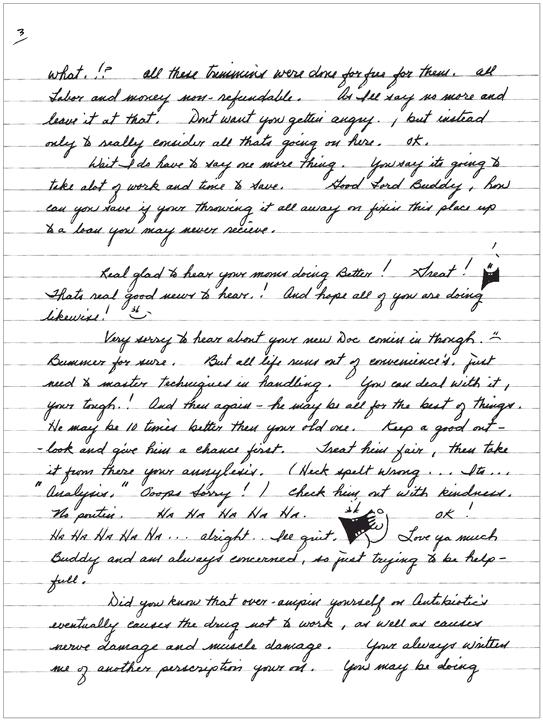 3
what. !? all these trimmins were done for free for them. all
Labor and money non-refundable. As I'll say no more and
leave it at that. Dont want you gettin angry. , but instead
only to really consider all thats going on here. OK.
Wait I do have to say one more thing. You say its going to
take alot of work and time to save. Good Lord Buddy, how
can you save if your throwing it all away on fixin this place up
to a loan you may never recieve.
Real glad to hear your moms doing Better! Great!
Thats real good news to hear.! And hope all of you are doing
likewise!
Very sorry to hear about your new Doc comin in though.
Bummer for sure. But all life runs out of convenience's, just
need to master techniques in handling. You can deal with it,
your tough.! And then again - he may be all for the best of things.
He may be 10 times better then your old one. Keep a good out-
-look and give him a chance first. Treat him fair, then take
it from there your annylesis. (Heck spelt wrong ... Its...
"Analysis." Ooops sorry! ) Check him out with kindness.
No poutin. HA HA HA HA HA. OK!
HA HA HA HA HA ... alright.. I'll quit. Love ya much
Buddy and am always concerned, so just trying to be help-
full.
Did you know that over-ampin yourself on Antibiotic's
eventually causes the drug not to work, as well as causes
nerve damage and muscle damage. Your always written
me of another perscription your on. You may be doing